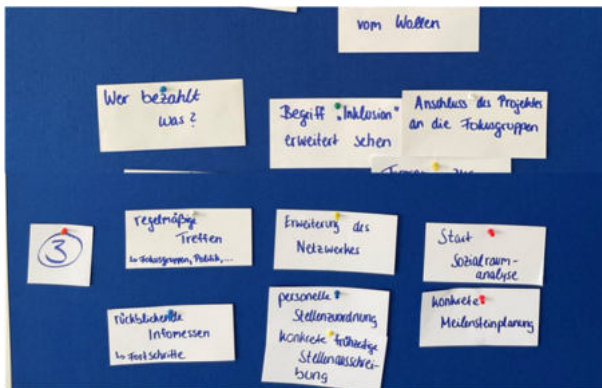 vom Wollen
Wer bezahlt
was?
Begriff „Inklusion"
erweitert sehen
Anschluss des Projektes
an die Fokusgruppen
3
regelmäßige
Treffen
↳ Fokusgruppen, Politik,...
Erweiterung des
Netzwerkes
Start
Sozialraum-
analyse
rückblickende
Infomessen
↳ Fortschritte
personelle
Stellenzuordnung
konkrete frühzeitige
Stellenausschrei-
bung
konkrete
Meilensteinplanung